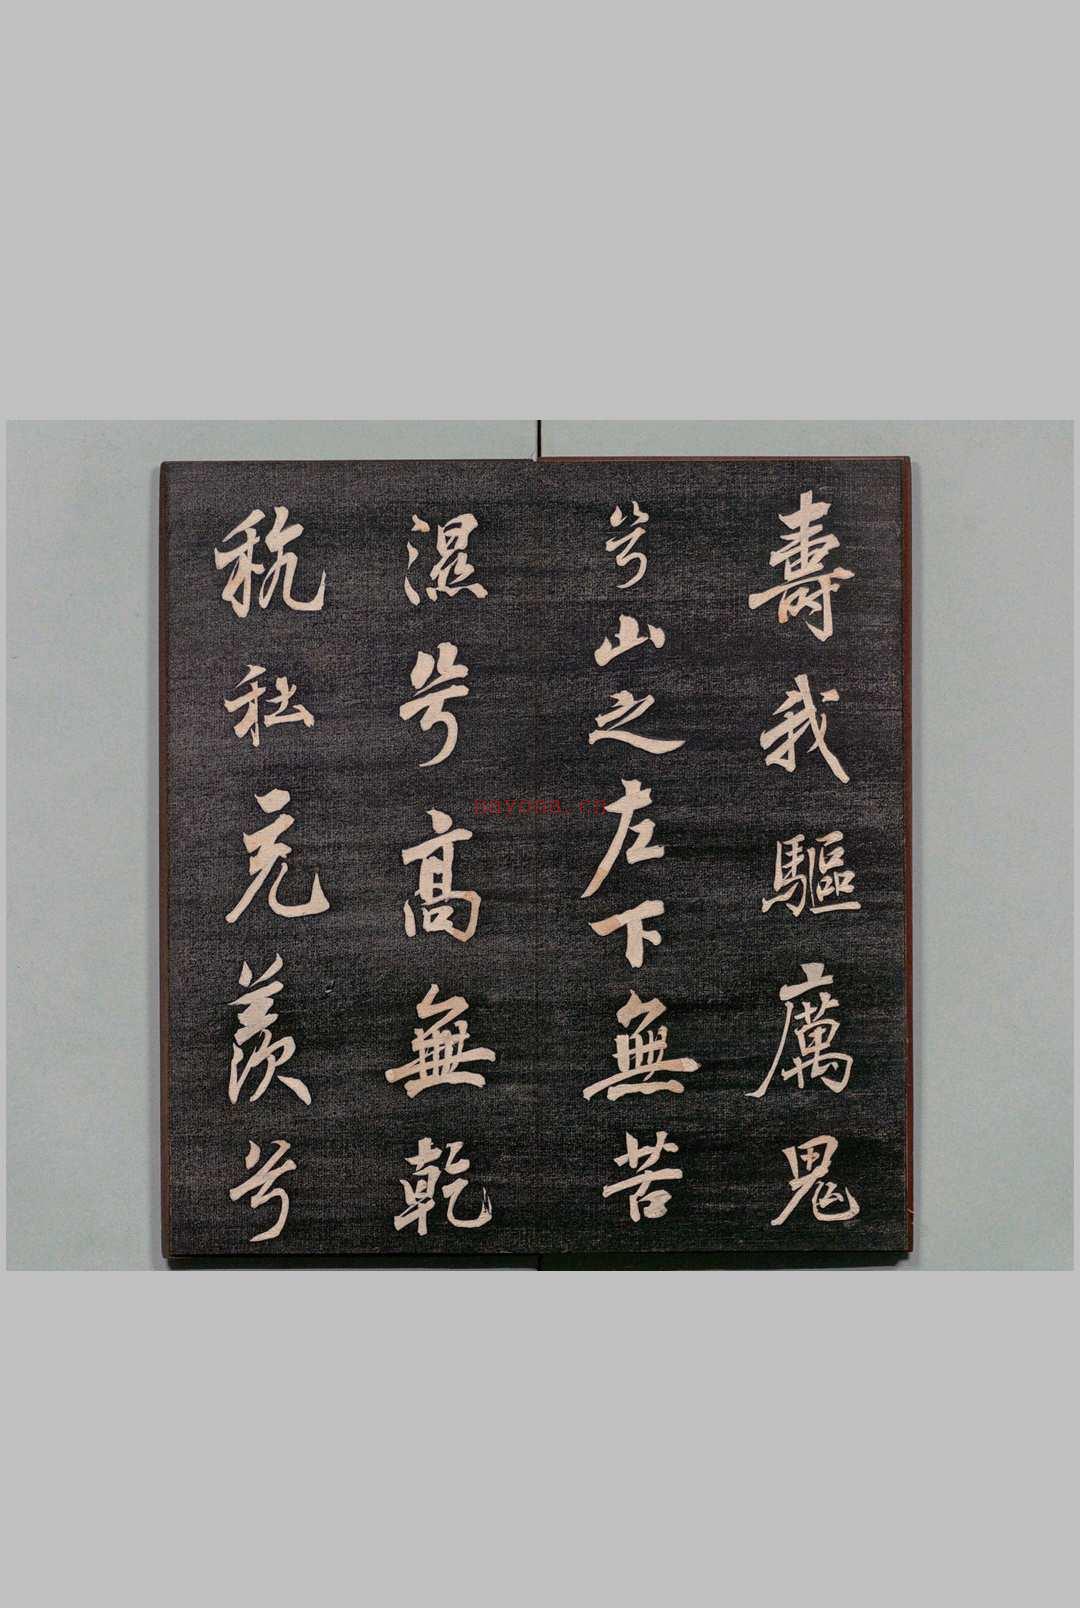 壽我驅厲鬼
兮山之左下無苦
濕兮高無乾
秔秫充羨兮
nayona.cn